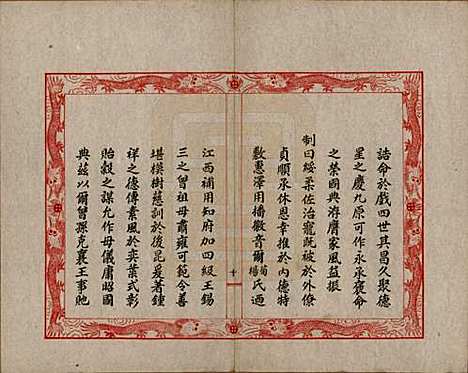 誥命於戲四世其昌久聚德
星之慶九原可作永承褒命
之榮國典洊膺家風益振
制曰綏柔佐治寵既被於外僚
貞順承休恩幸推於內德特
敷惠澤用播徽音爾
楊
菊
氏迺
十
江西補用知府加四級王錫
三之曾祖母肅雍可範令善
堪模樹慈訓於後昆爰著鍾
祥之德傳素風於奕葉式彰
貽穀之謀允作母儀庸昭國
典茲以爾曾孫克襄王事貤